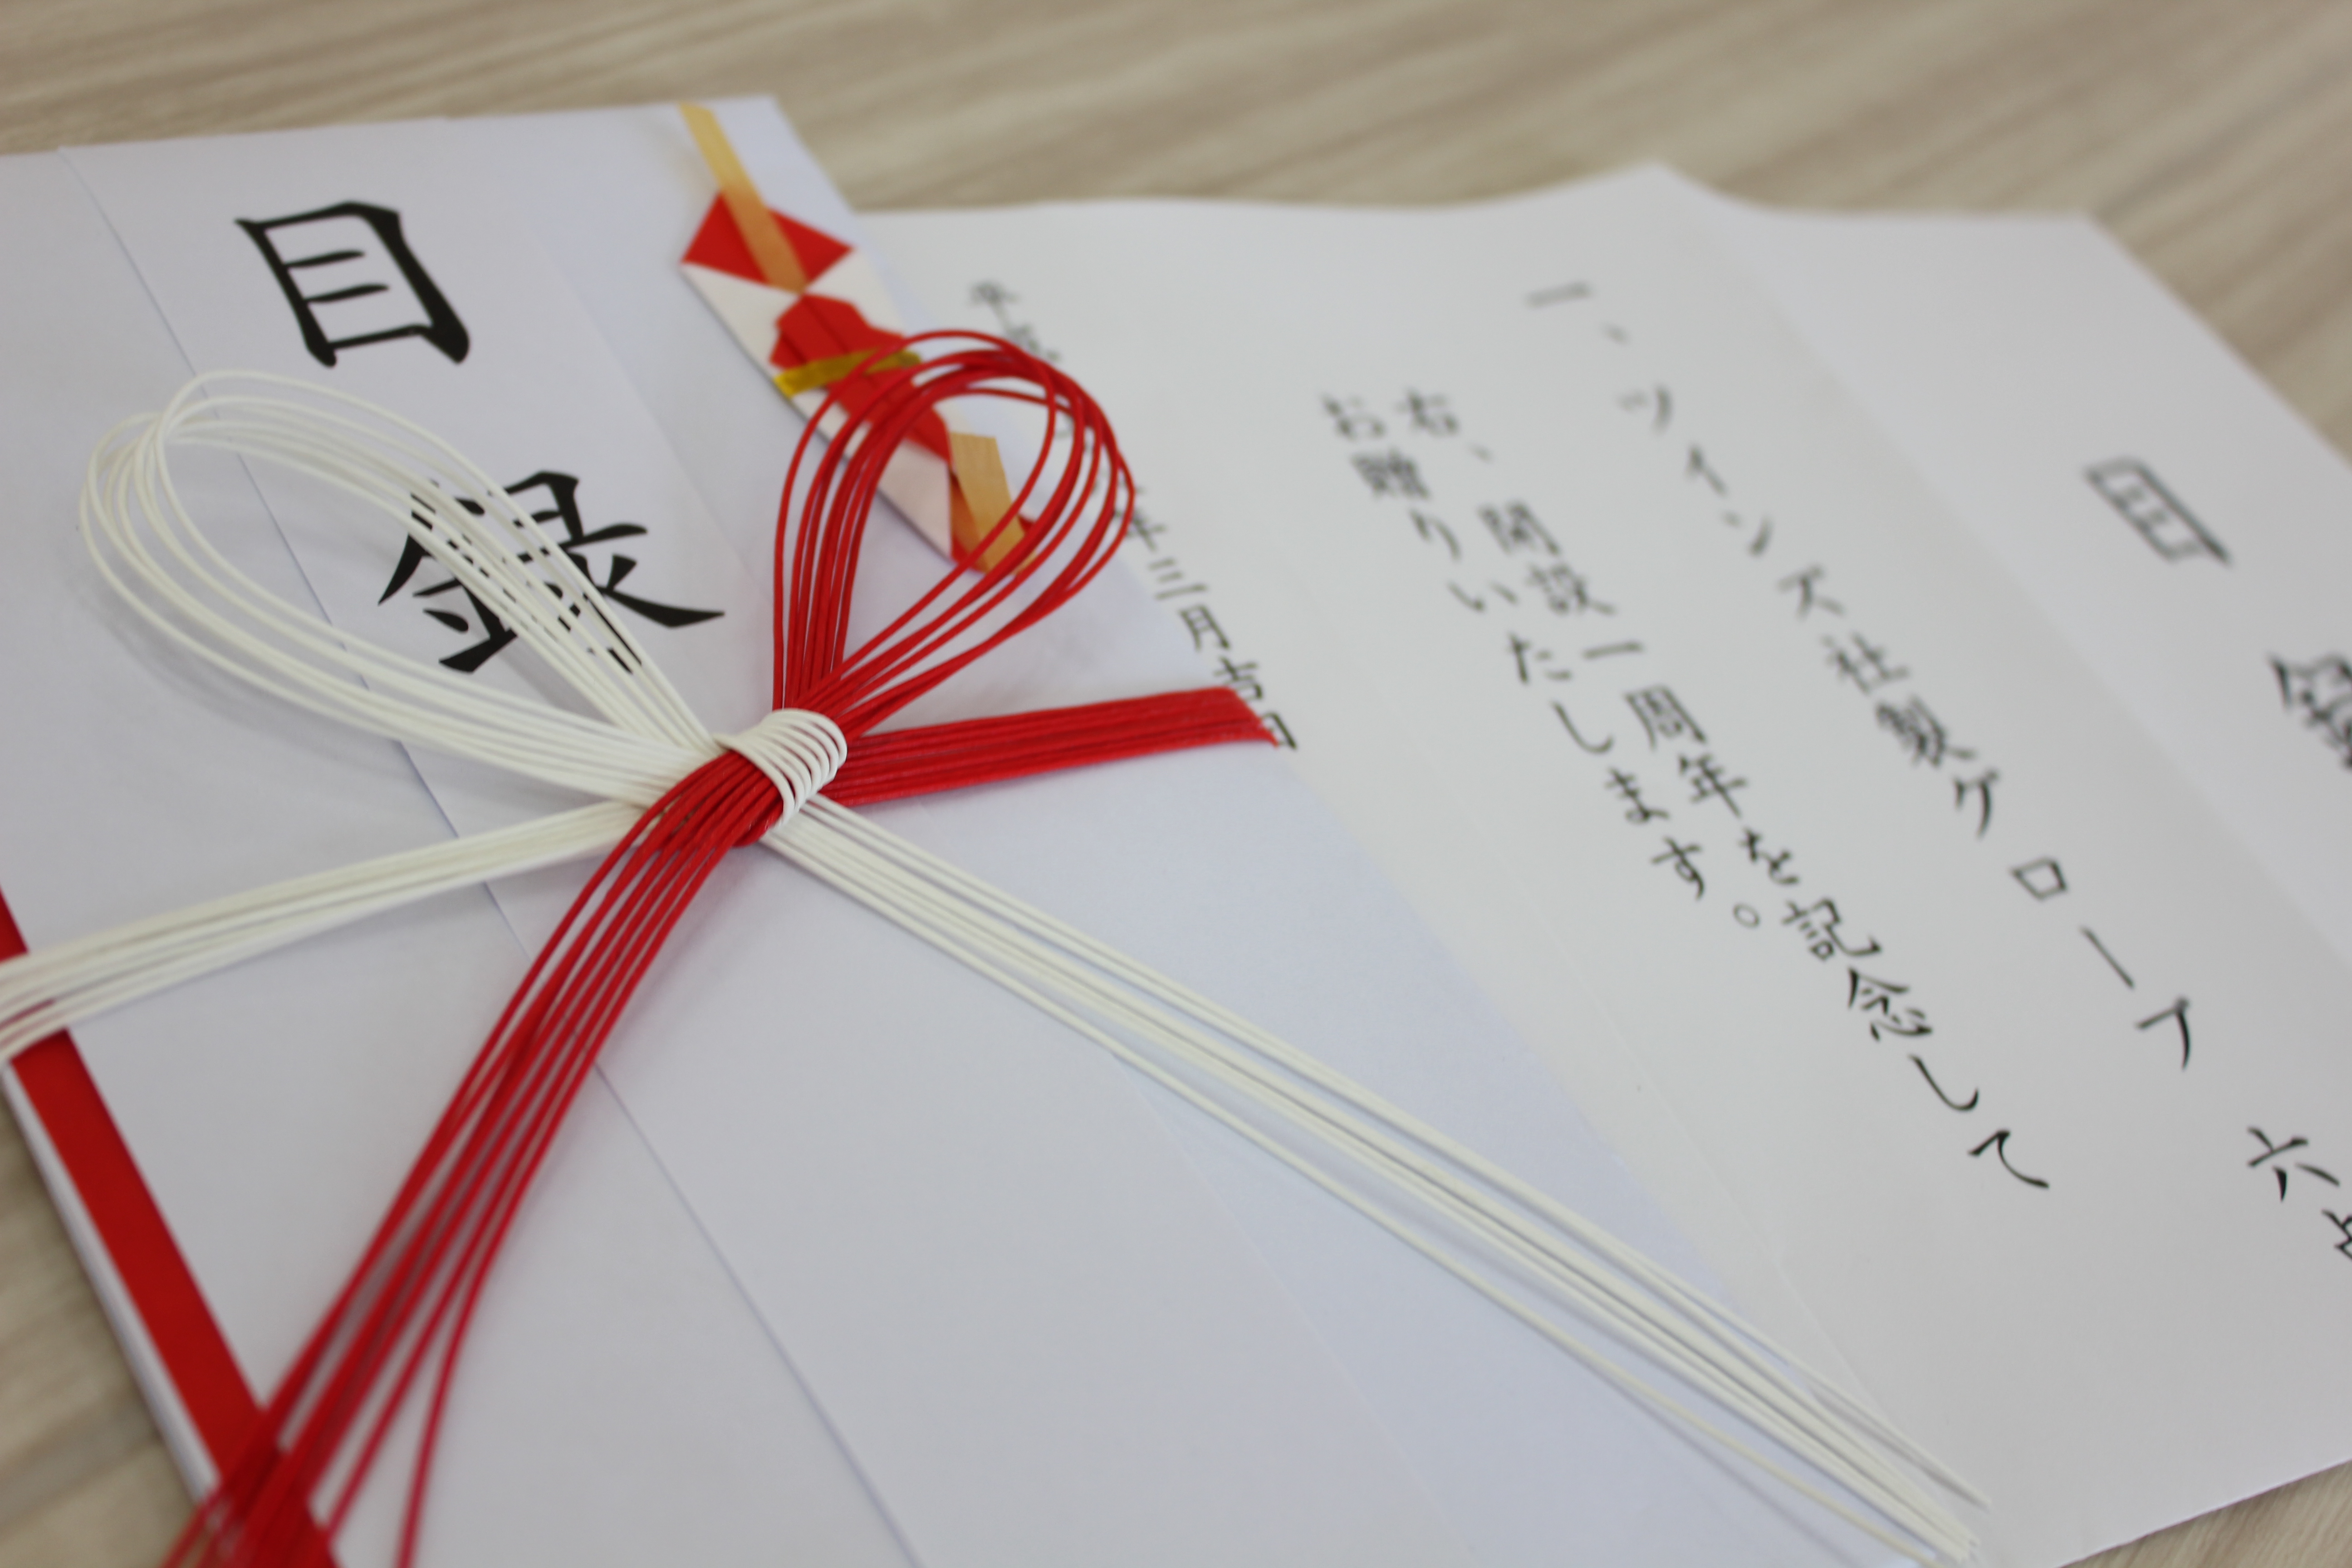 目録
目録
一、ツインズ社製グローブ 六
右、開設一周年を記念して
お贈りいたします。
平成 年三月吉日